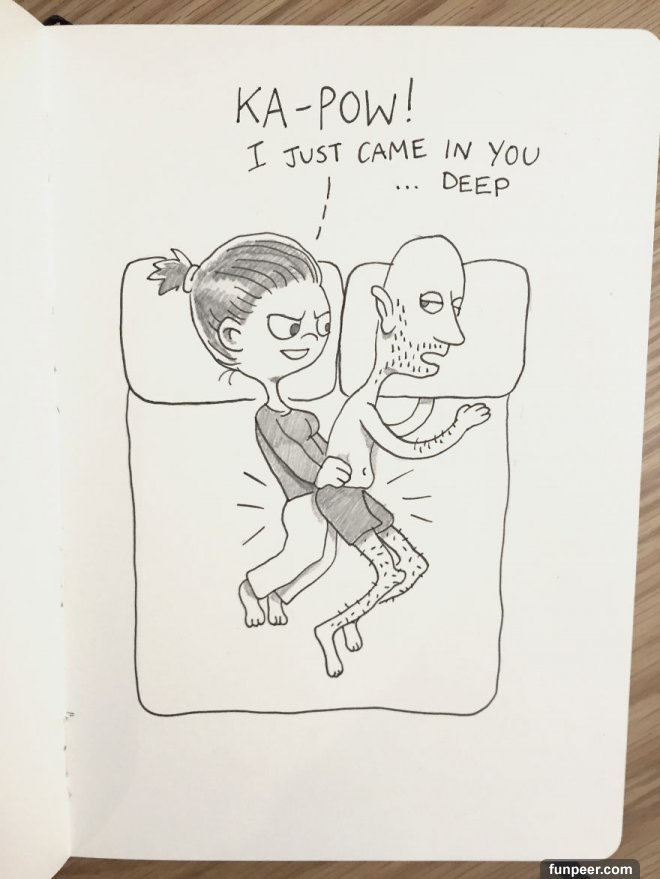 KA-POW!
I JUST CAME IN YOU
... DEEP
funpeer.com